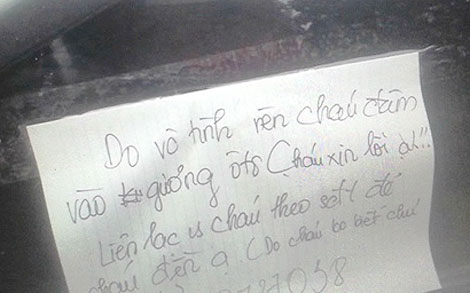 Do vô tình nên cháu đâm
vào gương ôtô Cháu xin lỗi ạ!!
Liên lạc vs cháu theo sđt để
cháu đền ạ (Do cháu ko biết chú